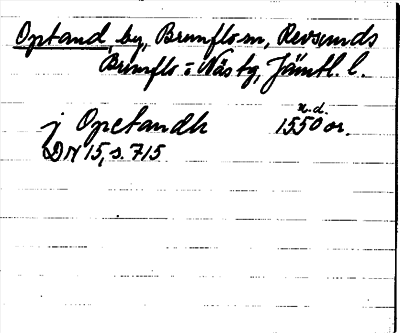 Optand, by, Brunflo sn, Revsunds
Brunflo o Näs tg, Jämtl. l.
n.d.
j Opetandh 1550 or.
DN 15, s. 715